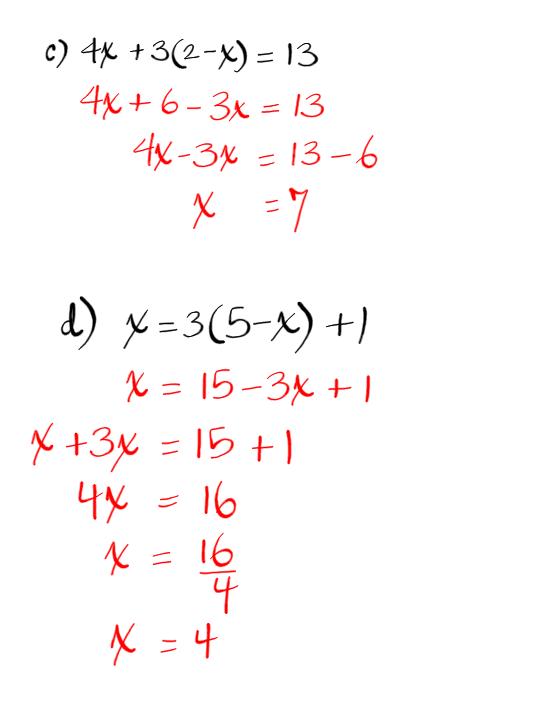 c) 4x + 3(2-x) = 13
4x + 6 - 3x = 13
4x - 3x = 13 - 6
x = 7
d) x = 3(5-x) + 1
x = 15 - 3x + 1
x + 3x = 15 + 1
4x = 16
x = 16/4
x = 4